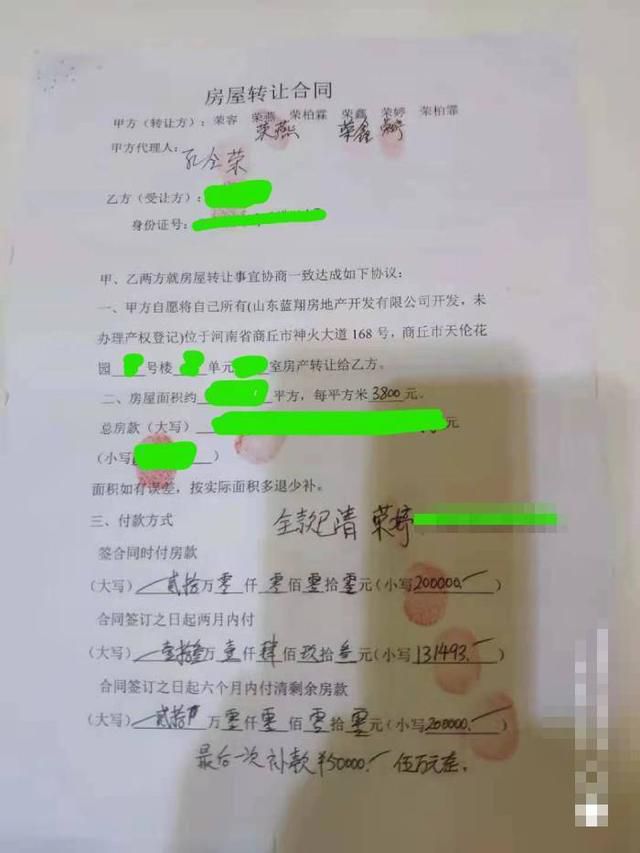 房屋转让合同
甲方（转让方）：荣容 荣燕 荣柏霖 荣鑫 荣婷 荣柏霏
荣燕 荣鑫 荣婷
甲方代理人：孔令荣
乙方（受让方）：
身份证号：
甲、乙两方就房屋转让事宜协商一致达成如下协议：
一、甲方自愿将自己所有(山东蓝翔房地产开发有限公司开发，未
办理产权登记)位于河南省商丘市神火大道 168 号，商丘市天伦花
园 号楼 单元 室房产转让给乙方。
二、房屋面积约 平方，每平方米 3800 元。
总房款（大写） 元
（小写 ）
面积如有误差，按实际面积多退少补。
三、付款方式 全款已清 荣婷
签合同时付房款
（大写）贰拾万零仟零佰零拾零元（小写 200000.-）
合同签订之日起两月内付
（大写）壹拾叁万壹仟肆佰玖拾叁元（小写 131493.-）
合同签订之日起六个月内付清剩余房款
（大写）贰拾万零仟零佰零拾零元（小写 200000.-）
最后一次补款¥50000.- 伍万元整.